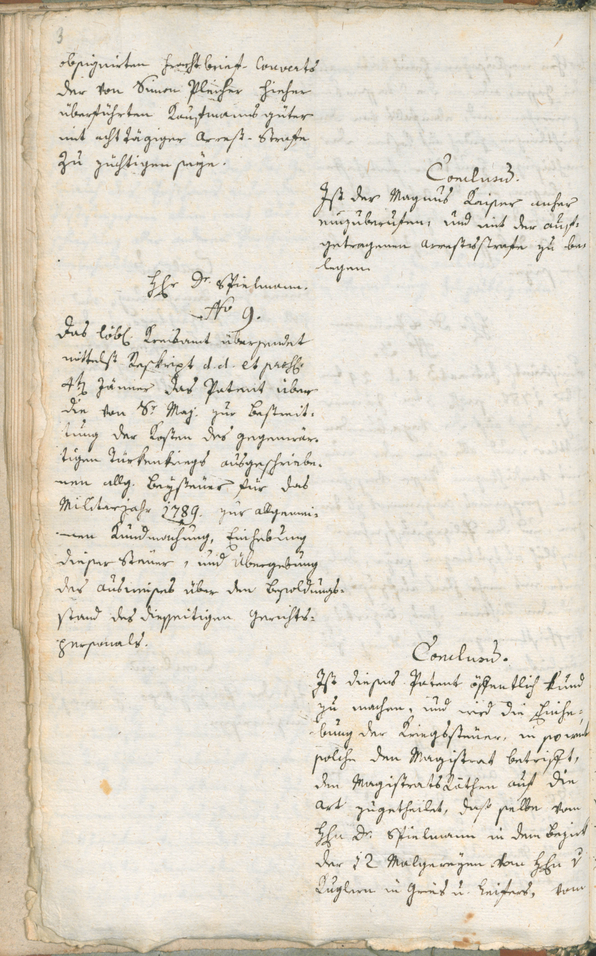 3
obsignirten Frachtbrief-Couverts
der von Simon Pleicher hieher
überführten Kaufmannsgüter
mit achttägiger Arrest-Strafe
zu züchtigen seye.
Conclusum.
Ist der Magnus Kaiser anher
einzuberufen, und mit der auf-
getragenen Arrestsstrafe zu be-
legen.
Hhr Dr. Spielmann.
No 9.
Das löbl. Kreisamt übersendet
mittelst Reskript d.d. et præs.
4t. Jänner das Patent über
die von Sr. Maj. zur Bestreit-
tung der Kosten des gegenwär-
tigen Türkenkriegs ausgeschriebe-
nen allg. Beysteuer für das
Militarjahr 1789. zur allgemei-
nen Kundmachung, Einhebung
dieser Steuer, und Übergebung
des Ausweises über den Besoldungs-
stand des diesseitigen Gerichts-
personals.
Conclusum.
Ist dieses Patent öffentlich kund
zu machen, und wird die Einhe-
bung der Kriegssteuer, in so weit
solche den Magistrat betrifft,
den Magistrats Räthen auf die
Art zugetheilet, daß selbe vom
Hhn Dr. Spielmann in dem Bezirk
der 12 Malgereyen vom Hhn v
Kuglern in Gries u. Leifers, vom